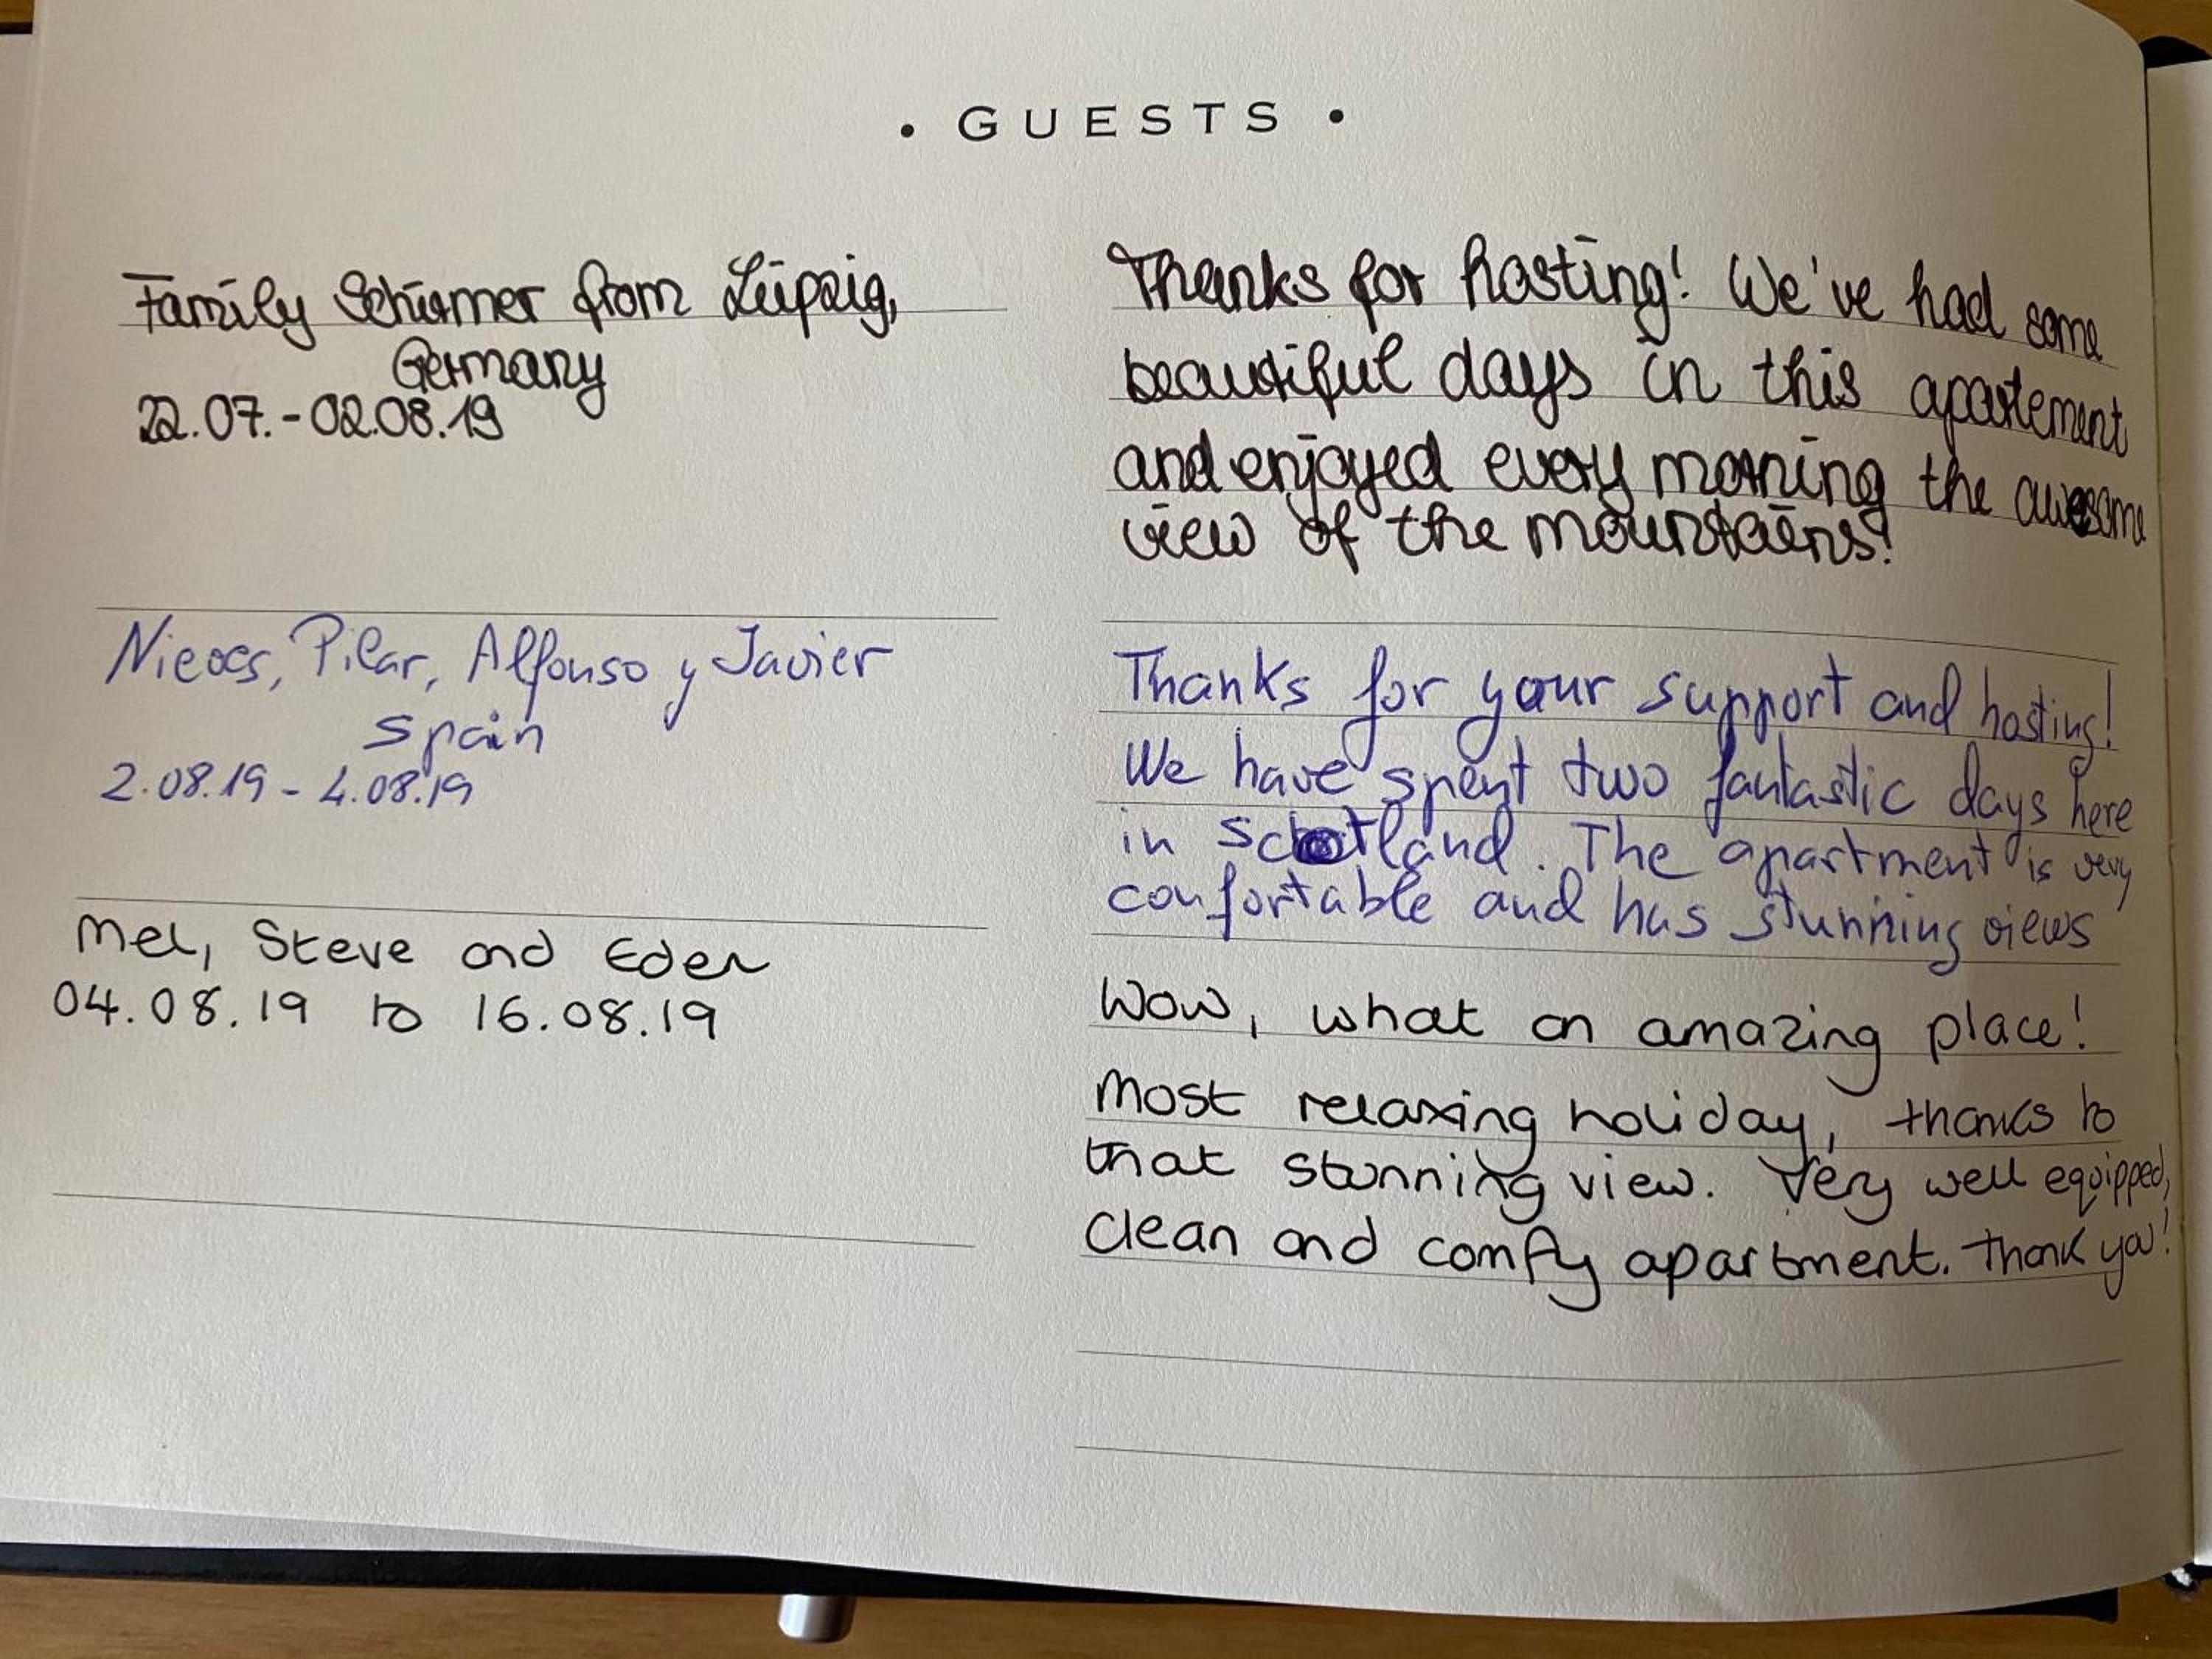 • GUESTS •
Family Schirmer from Leipzig,
Germany
22.07.-02.08.19
Thanks for hosting! We've had some
beautiful days in this apartement
and enjoyed every morning the awesome
view of the mountains!
Nieves, Pilar, Alfonso y Javier
Spain
2.08.19 - 4.08.19
Thanks for your support and hosting!
We have spent two fantastic days here
in Scotland. The apartment is very
confortable and has stunning views
Mel, Steve and Eden
04.08.19 to 16.08.19
Wow, what an amazing place!
Most relaxing holiday, thanks to
that stunning view. Very well equipped,
clean and comfy apartment. Thank you!